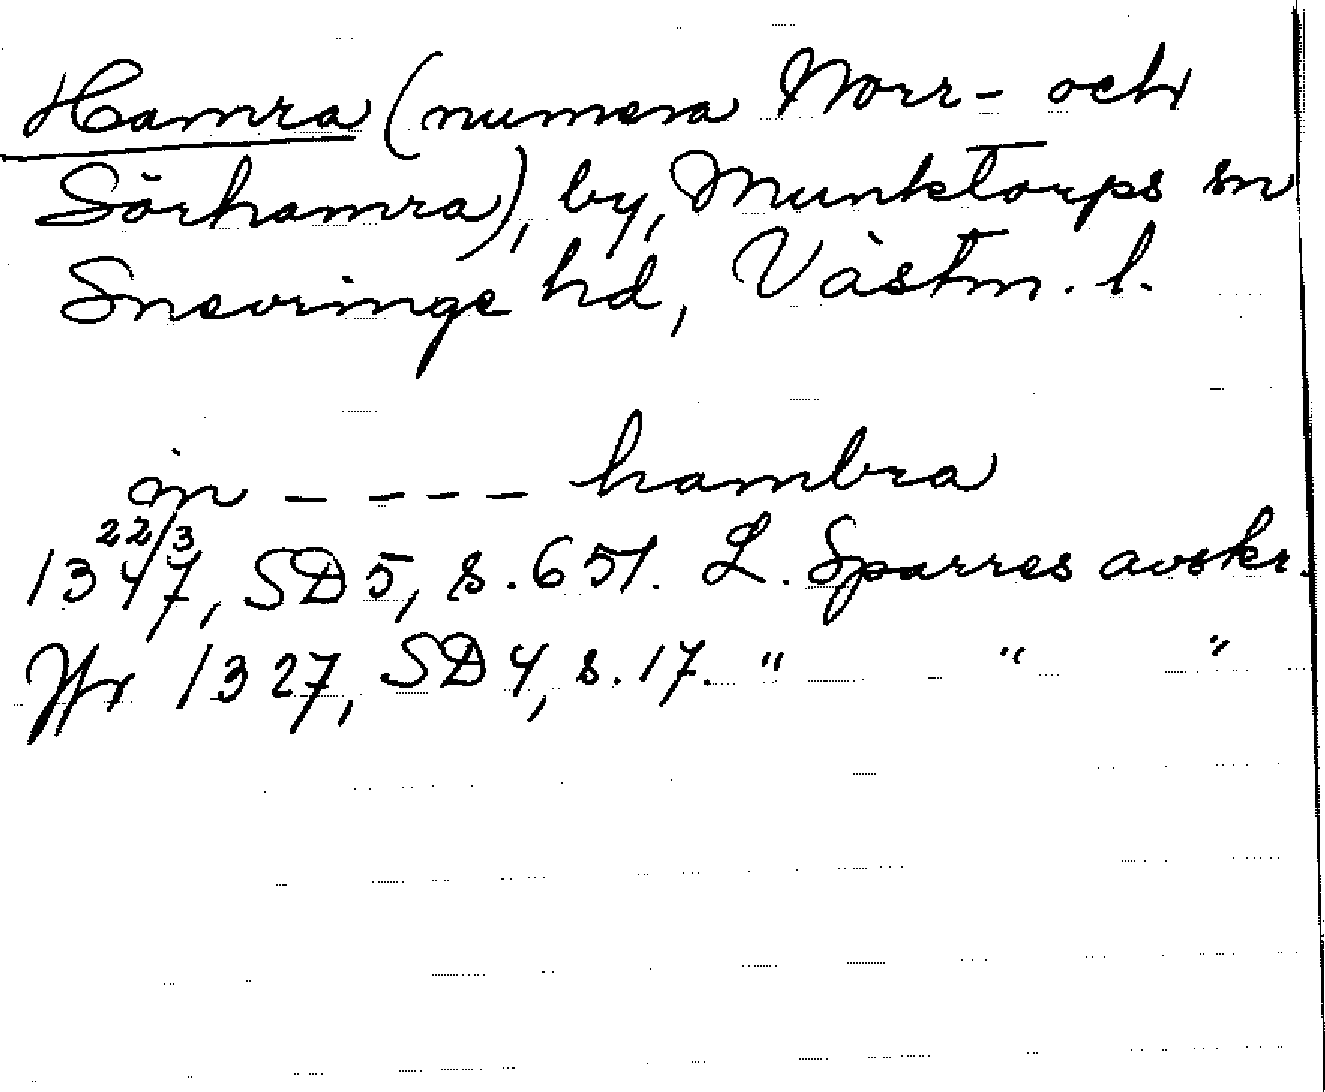 Hamra (numera Norr- och
Sörhamra), by, Munktorps sn
Snevringe hd, Västm. l.
in - - - - hambra
1347 22/3, SD 5, s. 651. L. Sparres avskr.
Jfr 1327, SD 4, s. 17. " " "